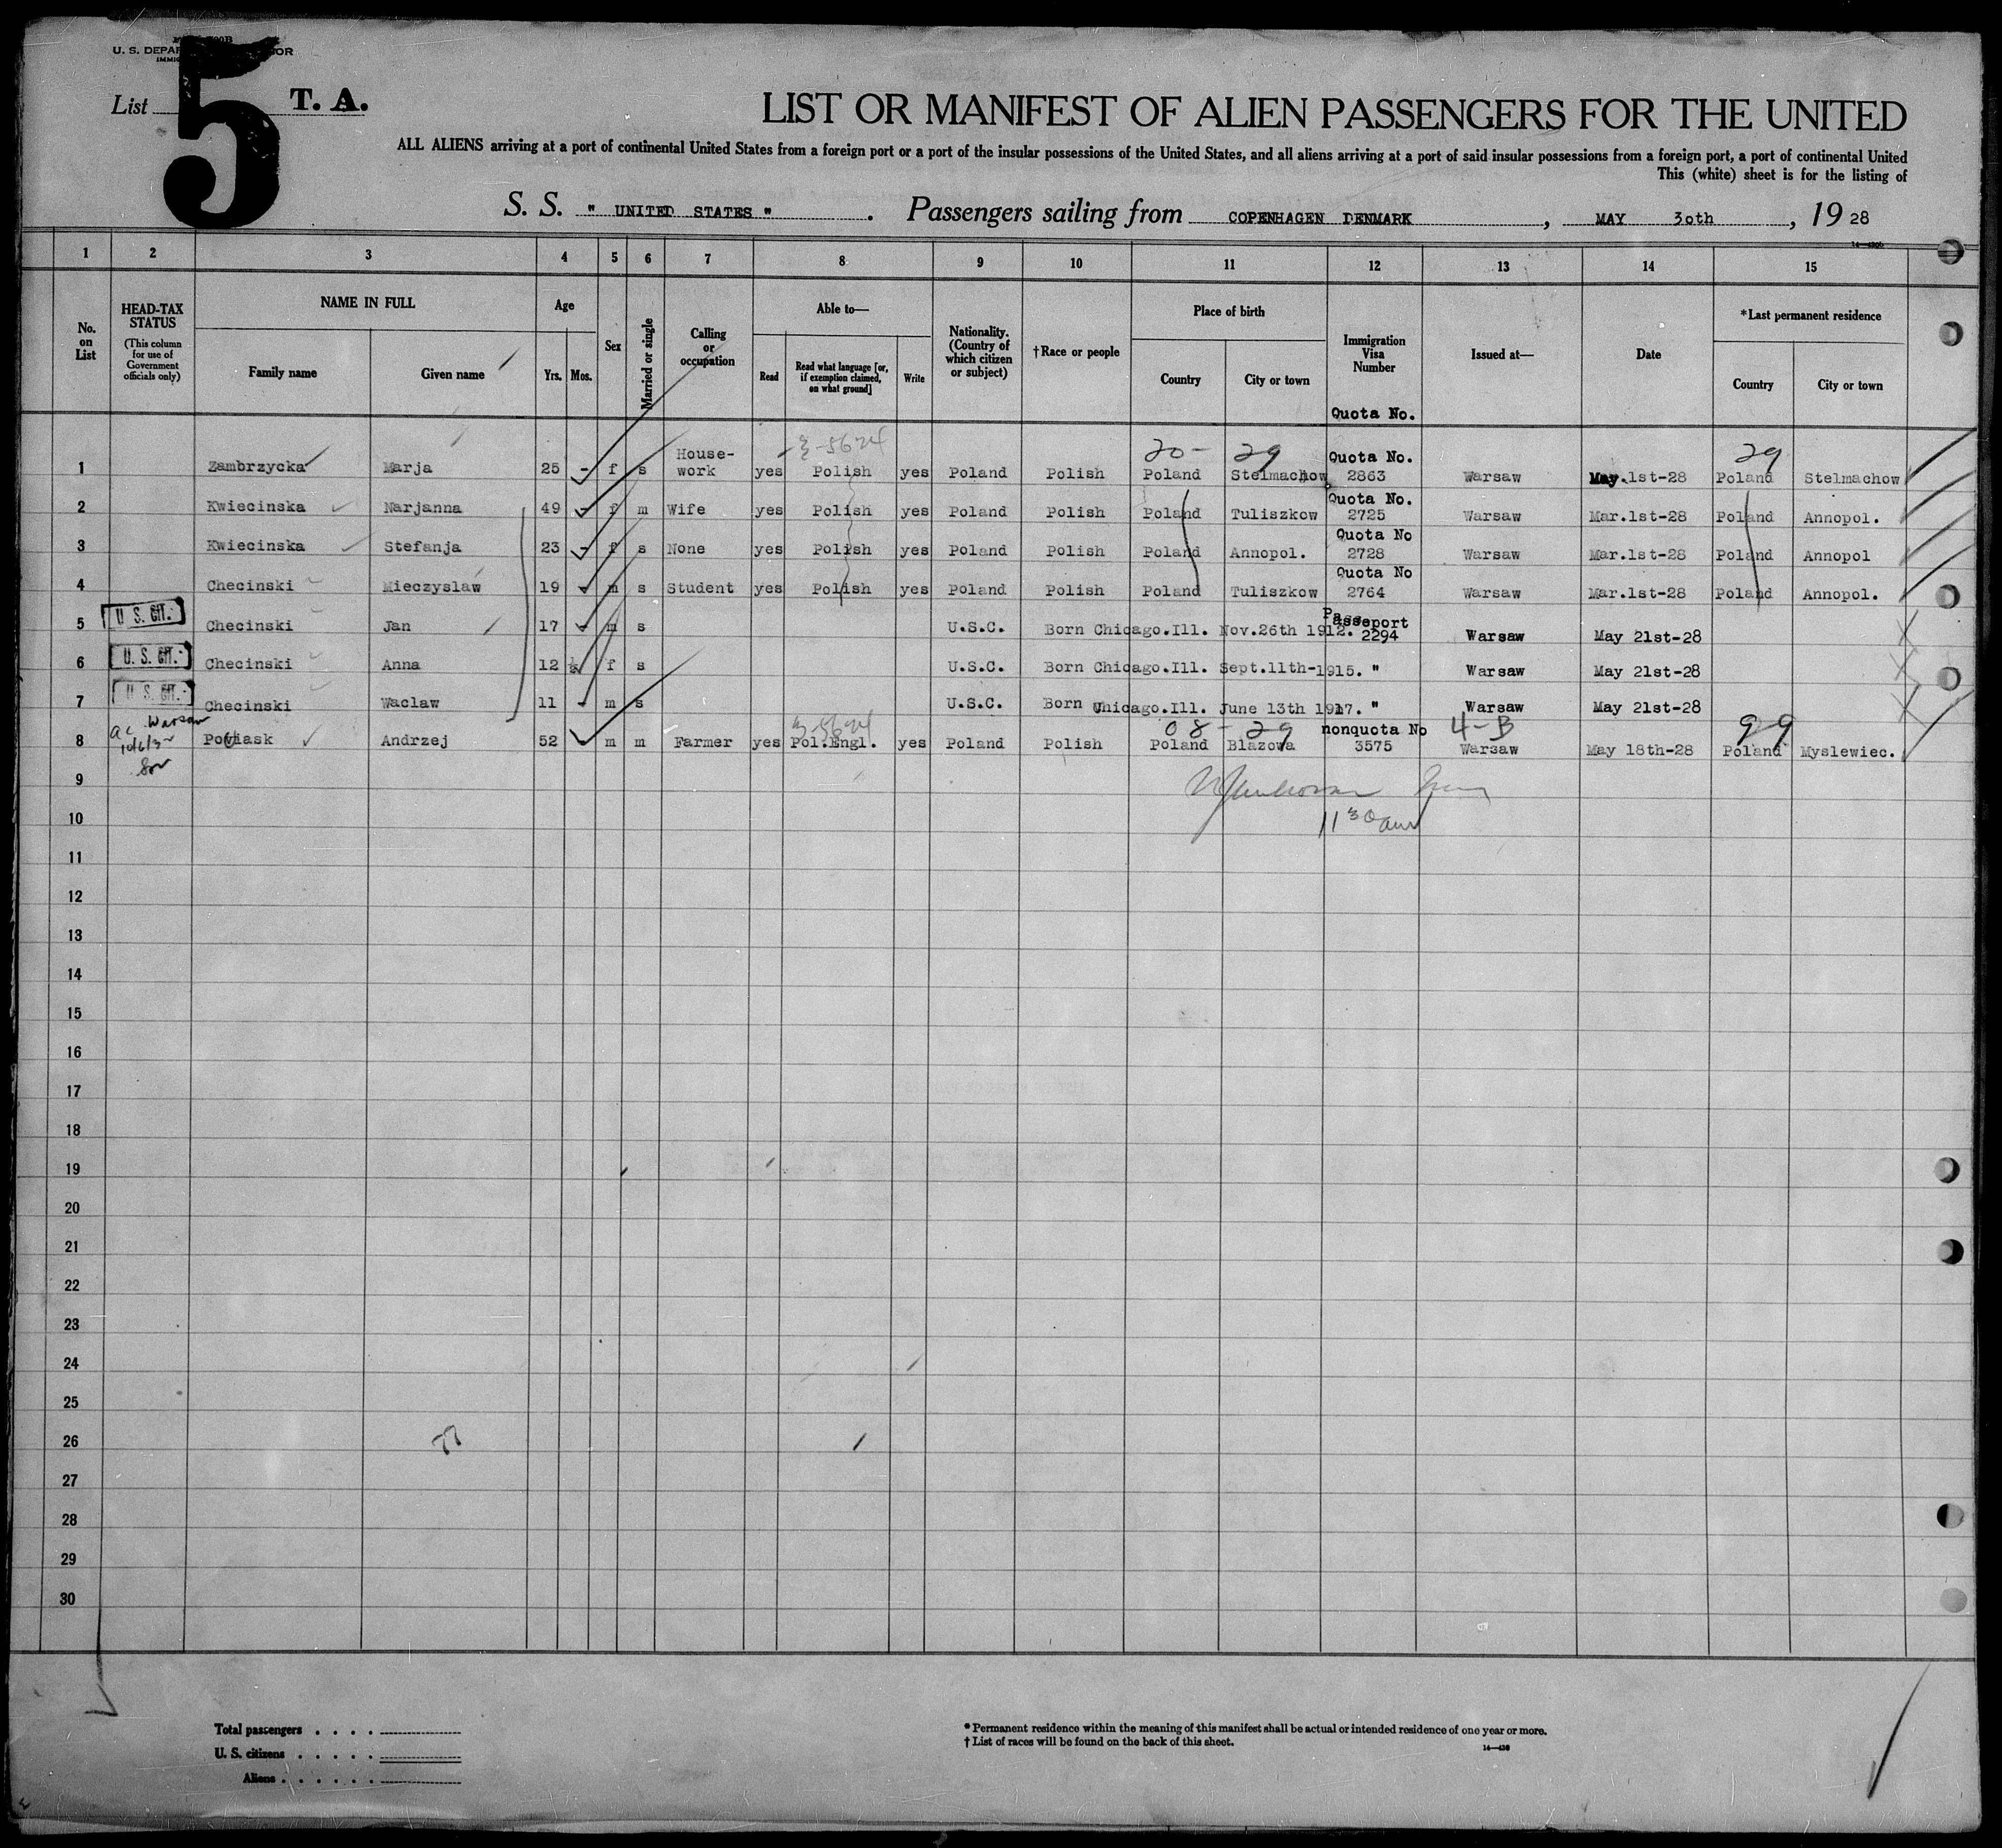 U. S. DEPAR OR
List 5 T. A.
LIST OR MANIFEST OF ALIEN PASSENGERS FOR THE UNITED
ALL ALIENS arriving at a port of continental United States from a foreign port or a port of the insular possessions of the United States, and all aliens arriving at a port of said insular possessions from a foreign port, a port of continental United
This (white) sheet is for the listing of
S. S. " UNITED STATES " . Passengers sailing from COPENHAGEN DENMARK , MAY 30th , 19 28
1 2 3 4 5 6 7 8 9 10 11 12 13 14 15
No. on List
HEAD-TAX STATUS (This column for use of Government officials only)
NAME IN FULL
Family name Given name
Age
Yrs. Mos.
Sex
Married or single
Calling or occupation
Able to—
Read
Read what language [or, if exemption claimed, on what ground]
Write
Nationality. (Country of which citizen or subject)
†Race or people
Place of birth
Country City or town
Immigration Visa Number
Quota No.
Issued at—
Date
*Last permanent residence
Country City or town
3-5624 20- 29 29
1 Zambrzycka Marja 25 - f s House-work yes Polish yes Poland Polish Poland Stelmachow Quota No. 2863 Warsaw May.1st-28 Poland Stelmachow
2 Kwiecinska Narjanna 49 - f m Wife yes Polish yes Poland Polish Poland Tuliszkow Quota No. 2725 Warsaw Mar.1st-28 Poland Annopol.
3 Kwiecinska Stefanja 23 - f s None yes Polish yes Poland Polish Poland Annopol. Quota No 2728 Warsaw Mar.1st-28 Poland Annopol
4 Checinski Mieczyslaw 19 - m s Student yes Polish yes Poland Polish Poland Tuliszkow Quota No 2764 Warsaw Mar.1st-28 Poland Annopol.
5 U. S. CIT. Checinski Jan 17 - m s U.S.C. Born Chicago.Ill. Nov.26th 1912. Passeport 2294 Warsaw May 21st-28
6 U. S. CIT. Checinski Anna 12 f s U.S.C. Born Chicago.Ill. Sept.11th-1915. " Warsaw May 21st-28
7 U. S. CIT. Checinski Waclaw 11 - m s U.S.C. Born Chicago.Ill. June 13th 1917. " Warsaw May 21st-28
Warsaw 3-5624 08 - 29 4-B 99
8 Andrzej 52 m m Farmer yes Pol.Engl. yes Poland Polish Poland Blazowa nonquota No 3575 Warsaw May 18th-28 Poland Myslewiec.
9
10 11 30 am
11
12
13
14
15
16
17
18
19
20
21
22
23
24
25
26
27
28
29
30
Total passengers . . . .
U. S. citizens . . . . .
Aliens . . . . . .
* Permanent residence within the meaning of this manifest shall be actual or intended residence of one year or more.
† List of races will be found on the back of this sheet.